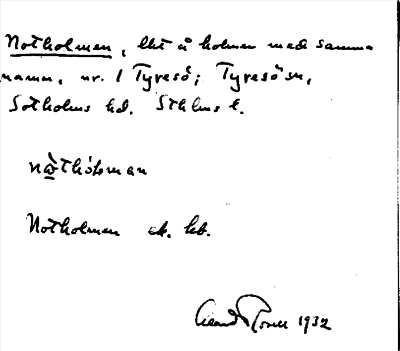 Notholmen, lht å holmen med samma
namn, nr. 1 Tyresö; Tyresö sn,
Sotholms hd. Sthlms l.
nòthòlman
Notholmen ek. kb.
1932